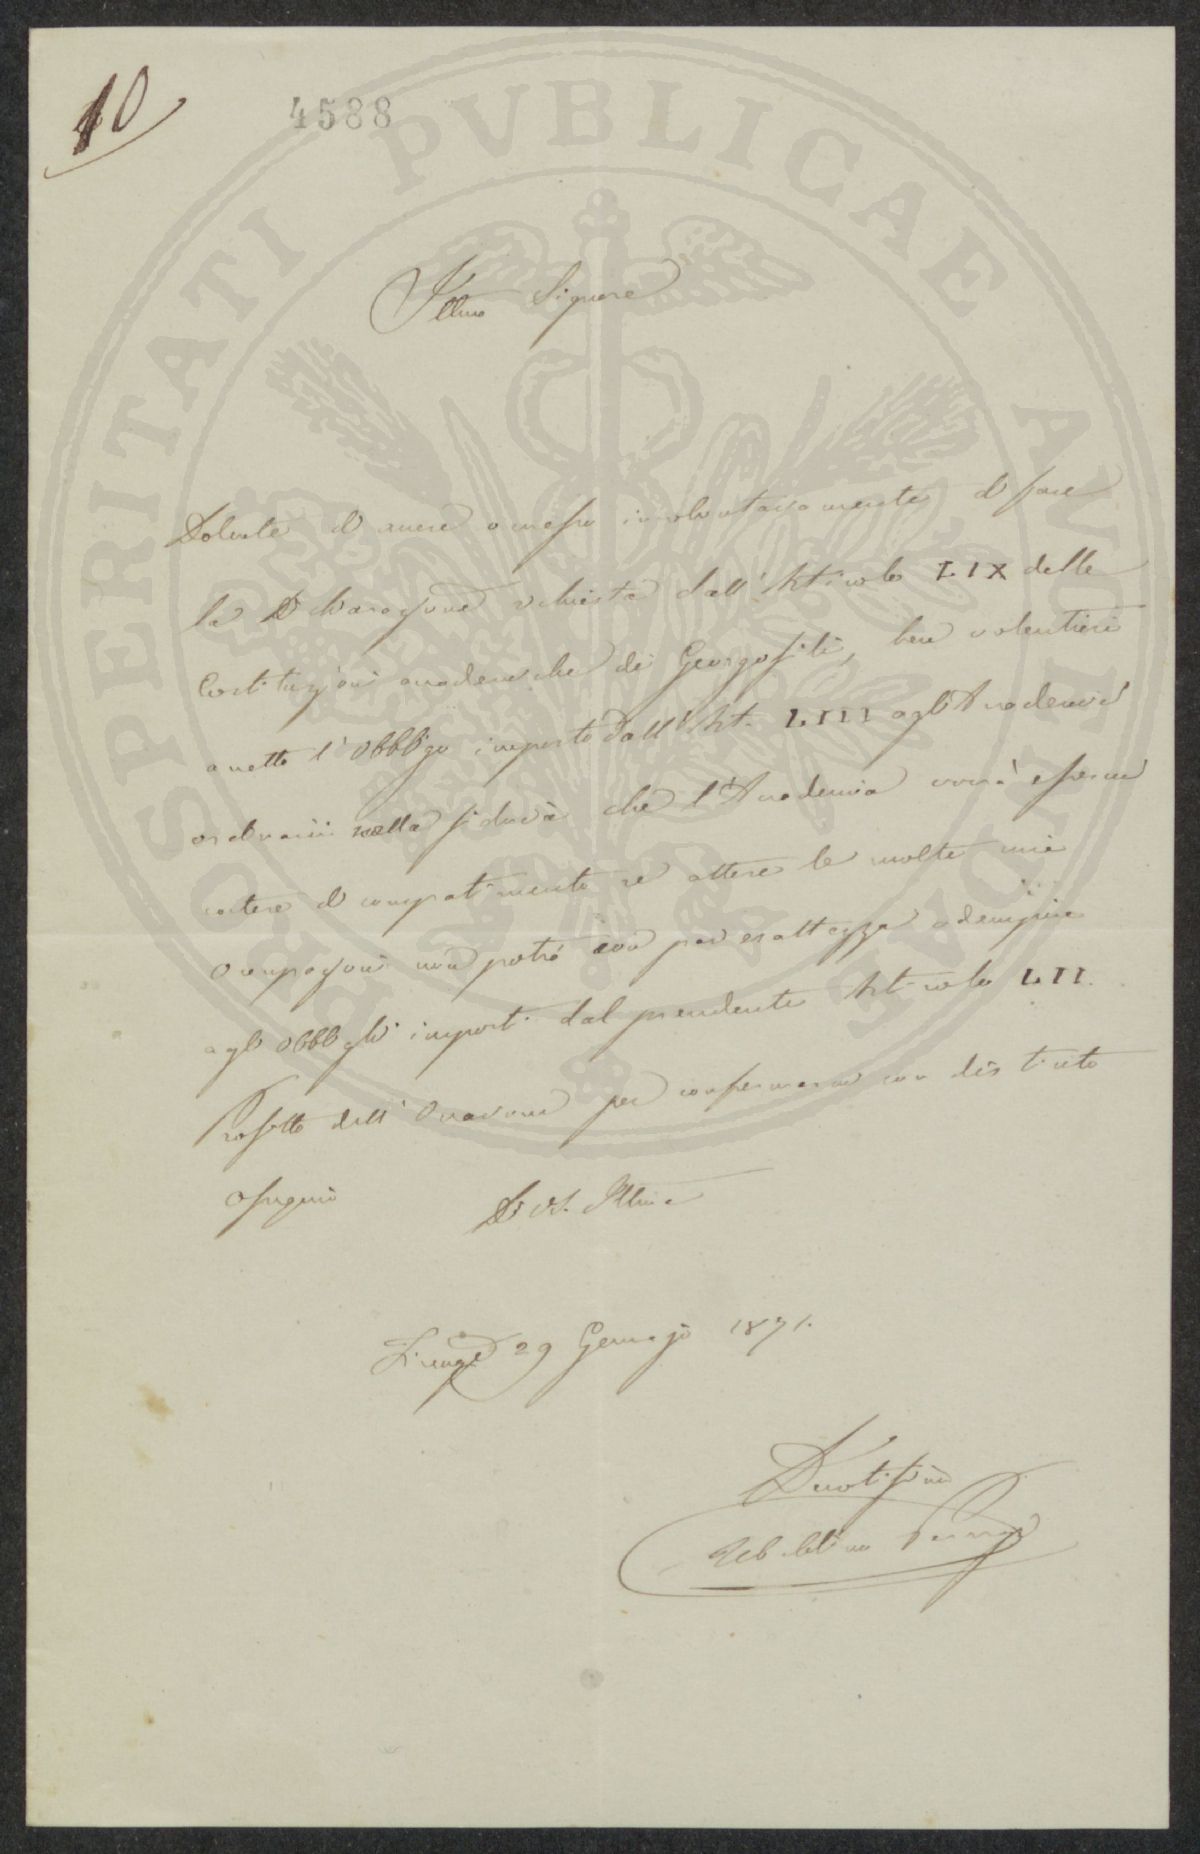 10
4588
PROSPERITATI PVBLICAE AVGENDAE
Illmo Signore
Dolente d'avere omesso involontariamente di fare
la Dichiarazione richiesta dall'Articolo LIX delle
Costituzioni accademiche dei Georgofili, ben volentieri
accetto l'obbligo imposto dall'Art. LIII agli Accademici
ordinarii nella fiducia che l'Accademia vorrà essermi
cortese di compatimento se attese le molte mie
occupazioni non potrò con pari esattezza adempire
agli obblighi imposti dal precedente Articolo LII.
Profitto dell'occasione per confermarmi con distinto
ossequio
Di VS. Illma
Firenze 29 Gennajo 1871.
Devotissimo
Ubaldino Peruzzi